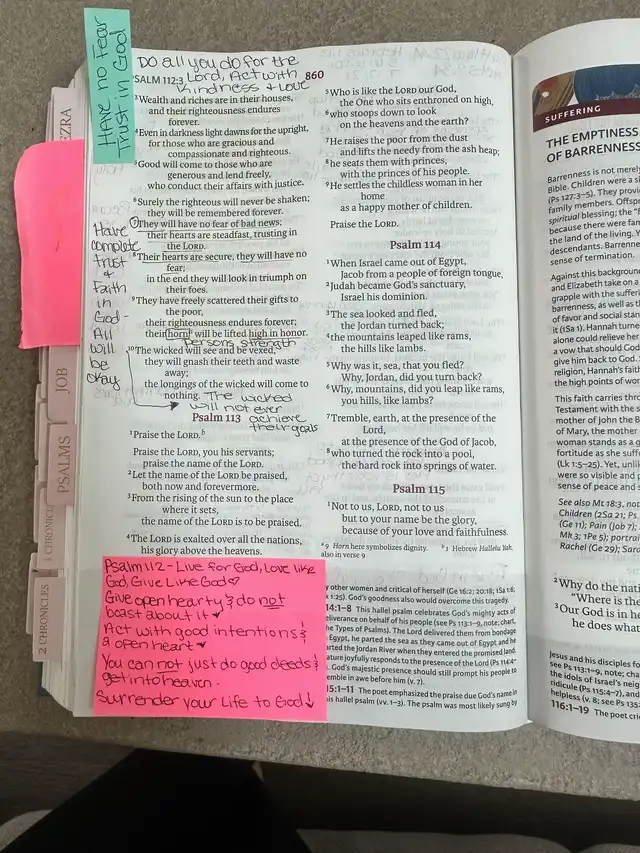 HAVE NO FEAR
Trust in God
Do all you do for the
Lord, Act with
Kindness + Love
PSALM 112:3
860
³Wealth and riches are in their houses,
and their righteousness endures
forever.
⁴Even in darkness light dawns for the upright,
for those who are gracious and
compassionate and righteous.
⁵Good will come to those who are
generous and lend freely,
who conduct their affairs with justice.
⁶Surely the righteous will never be shaken;
they will be remembered forever.
⁷They will have no fear of bad news;
their hearts are steadfast, trusting in
the LORD.
⁸Their hearts are secure, they will have no
fear;
in the end they will look in triumph on
their foes.
⁹They have freely scattered their gifts to
the poor,
their righteousness endures forever;
their horn will be lifted high in honor.
Persons strength
¹⁰The wicked will see and be vexed,
they will gnash their teeth and waste
away;
the longings of the wicked will come to
nothing.
The wicked
will not ever
achieve
their goals
Have
complete
trust
&
Faith
in
God-
All
will
be
okay
Psalm 113
¹Praise the LORD.ᵇ
Praise the LORD, you his servants;
praise the name of the LORD.
²Let the name of the LORD be praised,
both now and forevermore.
³From the rising of the sun to the place
where it sets,
the name of the LORD is to be praised.
⁴The LORD is exalted over all the nations,
his glory above the heavens.
Psalm 112 - Live for God, Love like
God, Give Like God
Give open hearty & do not
boast about it
Act with good intentions &
a open heart
You can not just do good deeds &
get into heaven.
Surrender your Life to God
⁵Who is like the LORD our God,
the One who sits enthroned on high,
⁶who stoops down to look
on the heavens and the earth?
⁷He raises the poor from the dust
and lifts the needy from the ash heap;
⁸he seats them with princes,
with the princes of his people.
⁹He settles the childless woman in her
home
as a happy mother of children.
Praise the LORD.
Psalm 114
¹When Israel came out of Egypt,
Jacob from a people of foreign tongue,
²Judah became God's sanctuary,
Israel his dominion.
³The sea looked and fled,
the Jordan turned back;
⁴the mountains leaped like rams,
the hills like lambs.
⁵Why was it, sea, that you fled?
Why, Jordan, did you turn back?
⁶Why, mountains, did you leap like rams,
you hills, like lambs?
⁷Tremble, earth, at the presence of the
Lord,
at the presence of the God of Jacob,
⁸who turned the rock into a pool,
the hard rock into springs of water.
Psalm 115
¹Not to us, LORD, not to us
but to your name be the glory,
because of your love and faithfulness.
ᵃ9 Horn here symbolizes dignity. ᵇ1 Hebrew Hallelu Yah,
also in verse 9
y other women and critical of herself (Ge 16:2; 20:18; 1Sa 1:6;
1:25). God's goodness also would overcome this tragedy.
14:1–8 This hallel psalm celebrates God's mighty acts of
deliverance on behalf of his people (see Ps 113:1–9, note; chart,
The Types of Psalms). The Lord delivered them from bondage
Egypt, he parted the sea as they came out of Egypt and he
arted the Jordan River when they entered the promised land.
ature joyfully responds to the presence of the Lord (Ps 114:4–
God's majestic presence should still prompt his people to
emble in awe before him (v. 7).
15:1–11 The poet emphasized the praise due God's name in
his hallel psalm (vv. 1–3). The psalm was most likely sung by
EZRA
JOB
PSALMS
1 CHRONIC
2 CHRONICLES
SUFFERING
THE EMPTINESS
OF BARRENNESS
Barrenness is not merely
Bible. Children were a si
(Ps 127:3–5). They provi
family members. Offspr
spiritual blessing; the "f
because there were fam
the land of the living. Y
descendants. Barrenne
sense of termination.
Against this background
and Elizabeth take on a
grapple with the suffering
barrenness, as well as th
of favor and social stan
it (1Sa 1). Hannah turne
alone could relieve her
a vow that should God
give him back to God.
religion, Hannah's faith
the high points of wor
This faith carries throu
Testament with the s
mother of John the B
of Mary, the mother
woman stands as a g
fortitude as she suffe
(Lk 1:5–25). Yet, unlik
were so visible and p
sense of peace and s
See also Mt 18:3, not
Children (2Sa 21; Ps
(Ge 11); Pain (Job 7);
Mk 3; 1Pe 5); portrait
Rachel (Ge 29); Sarah
²Why do the nati
"Where is the
³Our God is in he
he does what
Jesus and his disciples fo
see Ps 113:1–9, note; cha
the idols of Israel's neig
ridicule (Ps 115:4–7), and
helpless (v. 8; see Ps 135
116:1–19 The poet crie